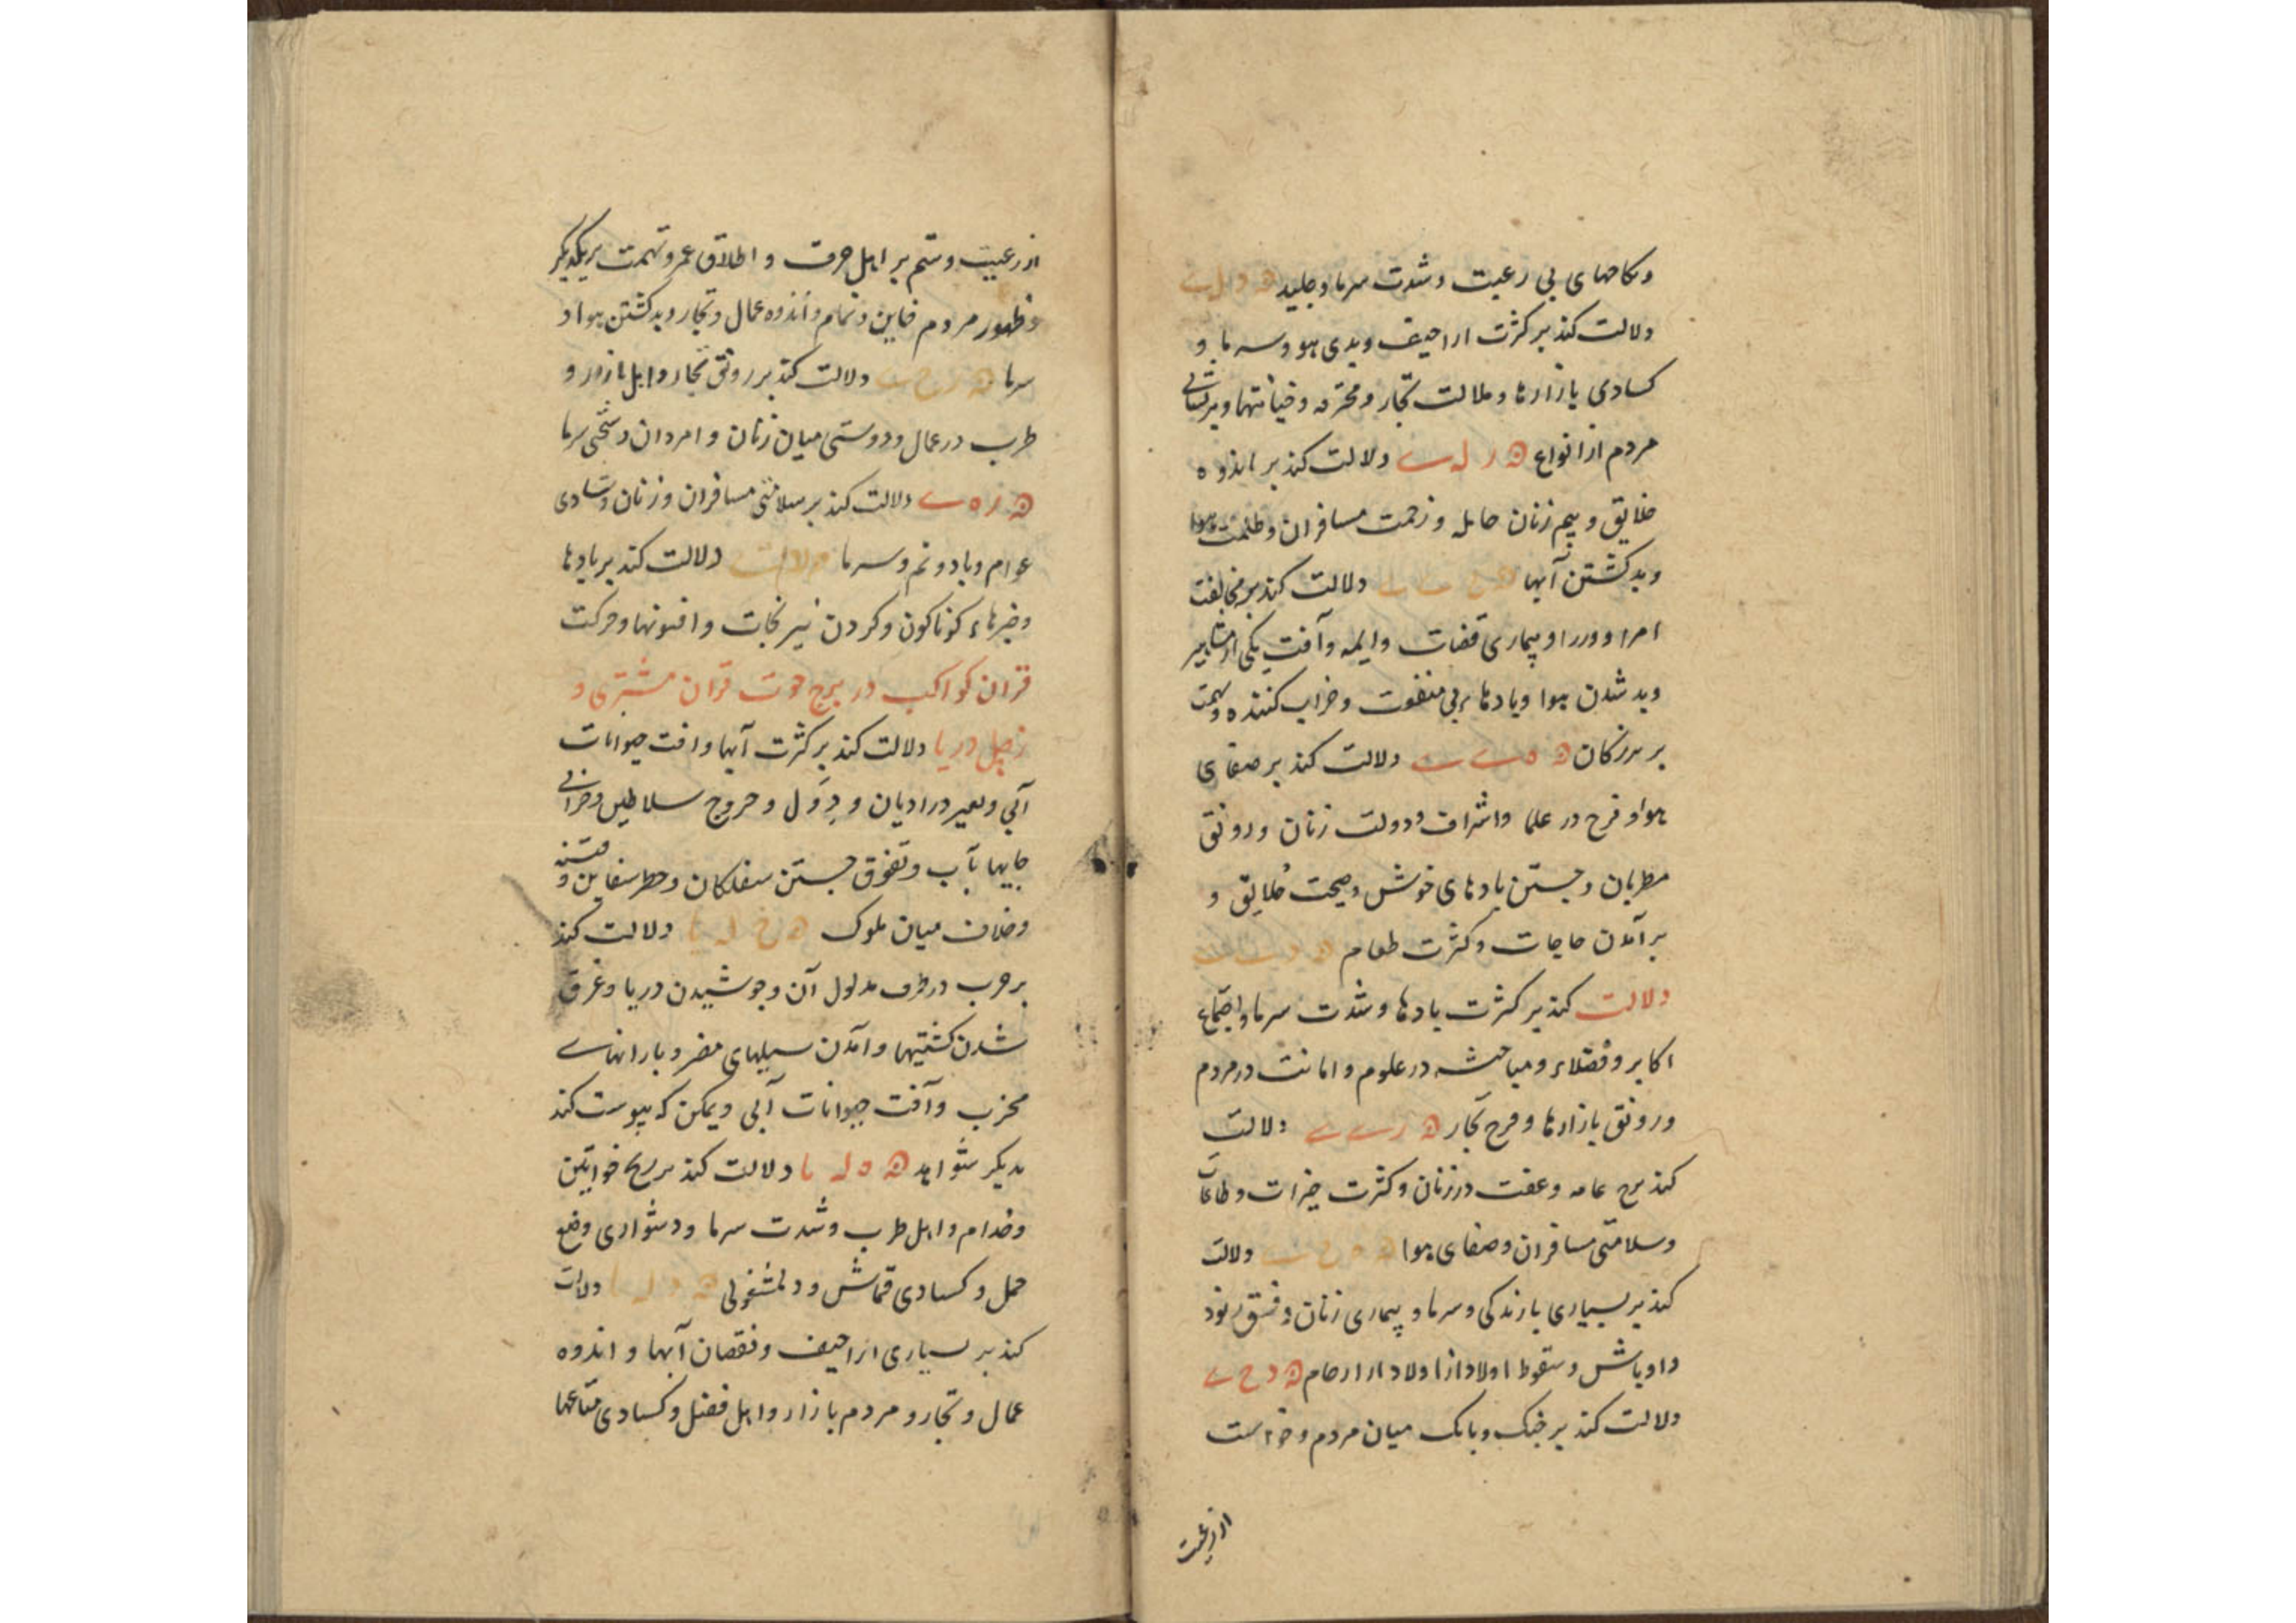 ونکاحهای بی رغبت وشدت سرما وجلید
دلالت کند بر کثرت اراجیف وبدی هوا وسرما و
کسادی بازارها وملالت تجار ومحترفه وخیانتها وپریشانی
مردم از انواع دلالت کند بر اندوه
خلایق وبیم زنان حامله وزحمت مسافران وظلمت هوا
وبد کشتن آبها دلالت کند بر مخالفت
امرا ووزرا وبیماری قضات وایمه وآفت یکی از مشاهیر
وبد شدن هوا وبادهاء بی منفعت وخراب کننده وتهمت
بر بزرکان دلالت کند بر صفای
هوا وفرح در علما واشراف ودولت زنان ورونق
مطربان وجستن بادهای خوش وصحت خلایق و
بر آمدن حاجات وکثرت طعام
دلالت کند بر کثرت بادها وشدت سرما واجتماع
اکابر وفضلاء ومباحثه در علوم وامانت در مردم
ورونق بازارها وفرح تجار دلالت
کند بر عامه وعفت در زنان وکثرت خیرات وطاعات
وسلامتی مسافران وصفای هوا دلالت
کند بر بسیاری بارندکی وسرما وبیماری زنان وفسق رنود
واوباش وسقوط اولاد از اولاد از ارحام
دلالت کند بر جنک وبانک میان مردم وخواست
از رعیت
از رعیت وستم بر اهل حرف و اطلاق عمر وتهمت بر یکدیکر
وظهور مردم خاین ونمام واندوه عمال وتجار وبد کشتن هوا و
سرما دلالت کند بر رونق تجار واهل بازار و
طرب در عمال ودوستی میان زنان و امردان وسختی سرما
دلالت کند بر سلامتی مسافران وزنان وشادی
عوام وباد ونم وسرما دلالت کند بر بادها
وخبرهاء کوناکون وکردن نیرنجات وافسونها وحرکت
قران کواکب در برج حوت قران مشتری و
زحل در یا دلالت کند بر کثرت آبها وافت حیوانات
آبی وتغییر در ادیان و دول وخروج سلاطین وخرابی
جایها بآب وتفوق جستن سفلکان وخطر سفاین و فتنه
وخلاف میان ملوک دلالت کند
بر حرب در طرف مدلول آن وجوشیدن دریا وغرق
شدن کشتیها وآمدن سیلهای مضر وبارانهاے
مخرب وآفت حیوانات آبی ویمکن که پیوست کند
بدیکر شواهد دلالت کند بر رنج خواتین
وخدام واهل طرب وشدت سرما ودشواری وضع
حمل وکسادی قماش ودلمشغولی دلالت
کند بر بسیاری اراجیف ونقصان آبها و اندوه
عمال وتجار ومردم بازار واهل فضل وکسادی متاعها